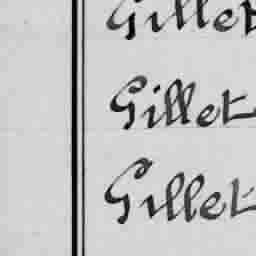 Gillet
Gillet
Gillet